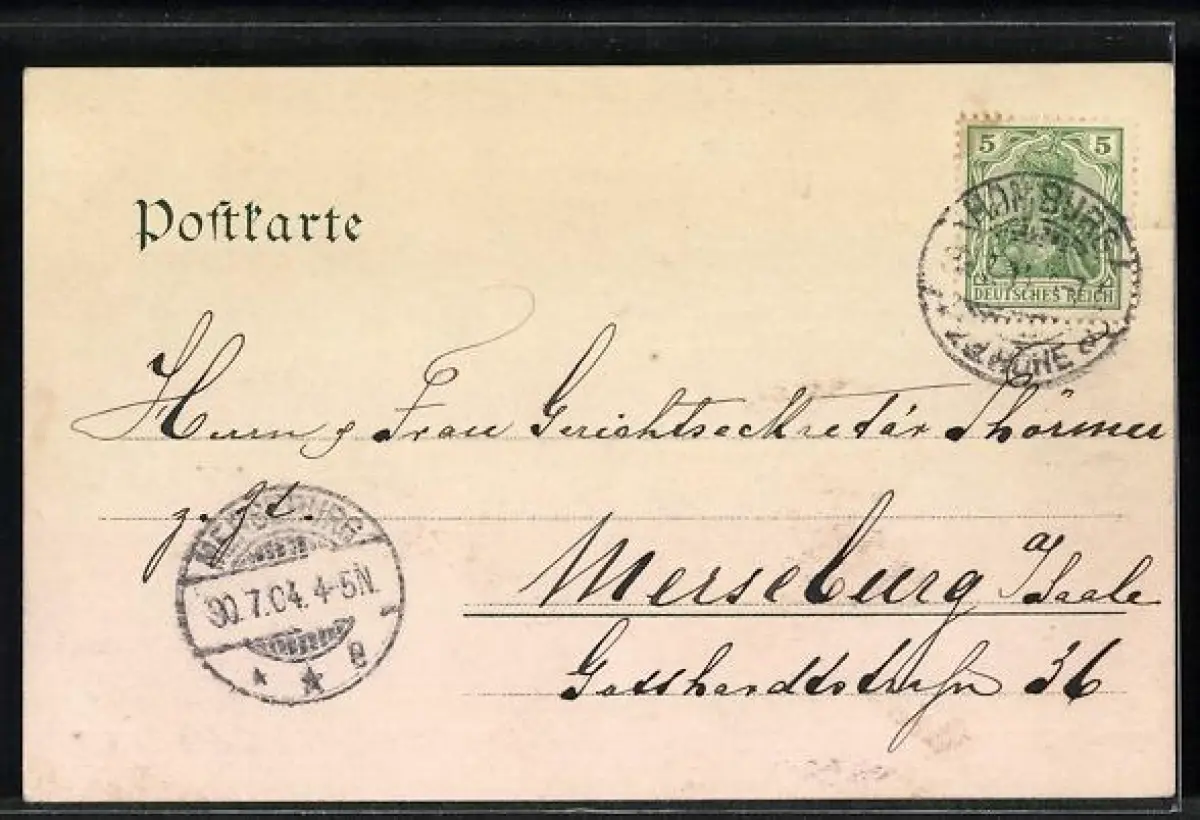 5 5
DEUTSCHES REICH
HOMBURG
HÖHE
Postkarte
Herrn & Frau Gerichtssekretär Thörmer
z. Zt.
Merseburg a/Saale
Gotthardtstraße 36
MERSEBURG
30.7.04. 4-5N.
* * e